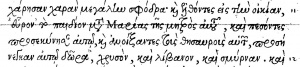 χάρησαν χαρὰν μεγάλην σφόδρα· κ̀ ἐλθόντες εἰς τὴν οἰκίαν,
εὗρον τὸ παιδίον μζ̀ Μαρίας τῆς μητρὸς αὐτ͂, καὶ πεσόντες
προσεκύνησαν αὐτῷ, κ̀ ἀνοίξαντες τοὺς θησαυροὺς αὐτ͂, προσή-
νεγκαν αὐτῷ δῶρα, χρυσὸν, καὶ λίβανον, καὶ σμύρναν, καὶ